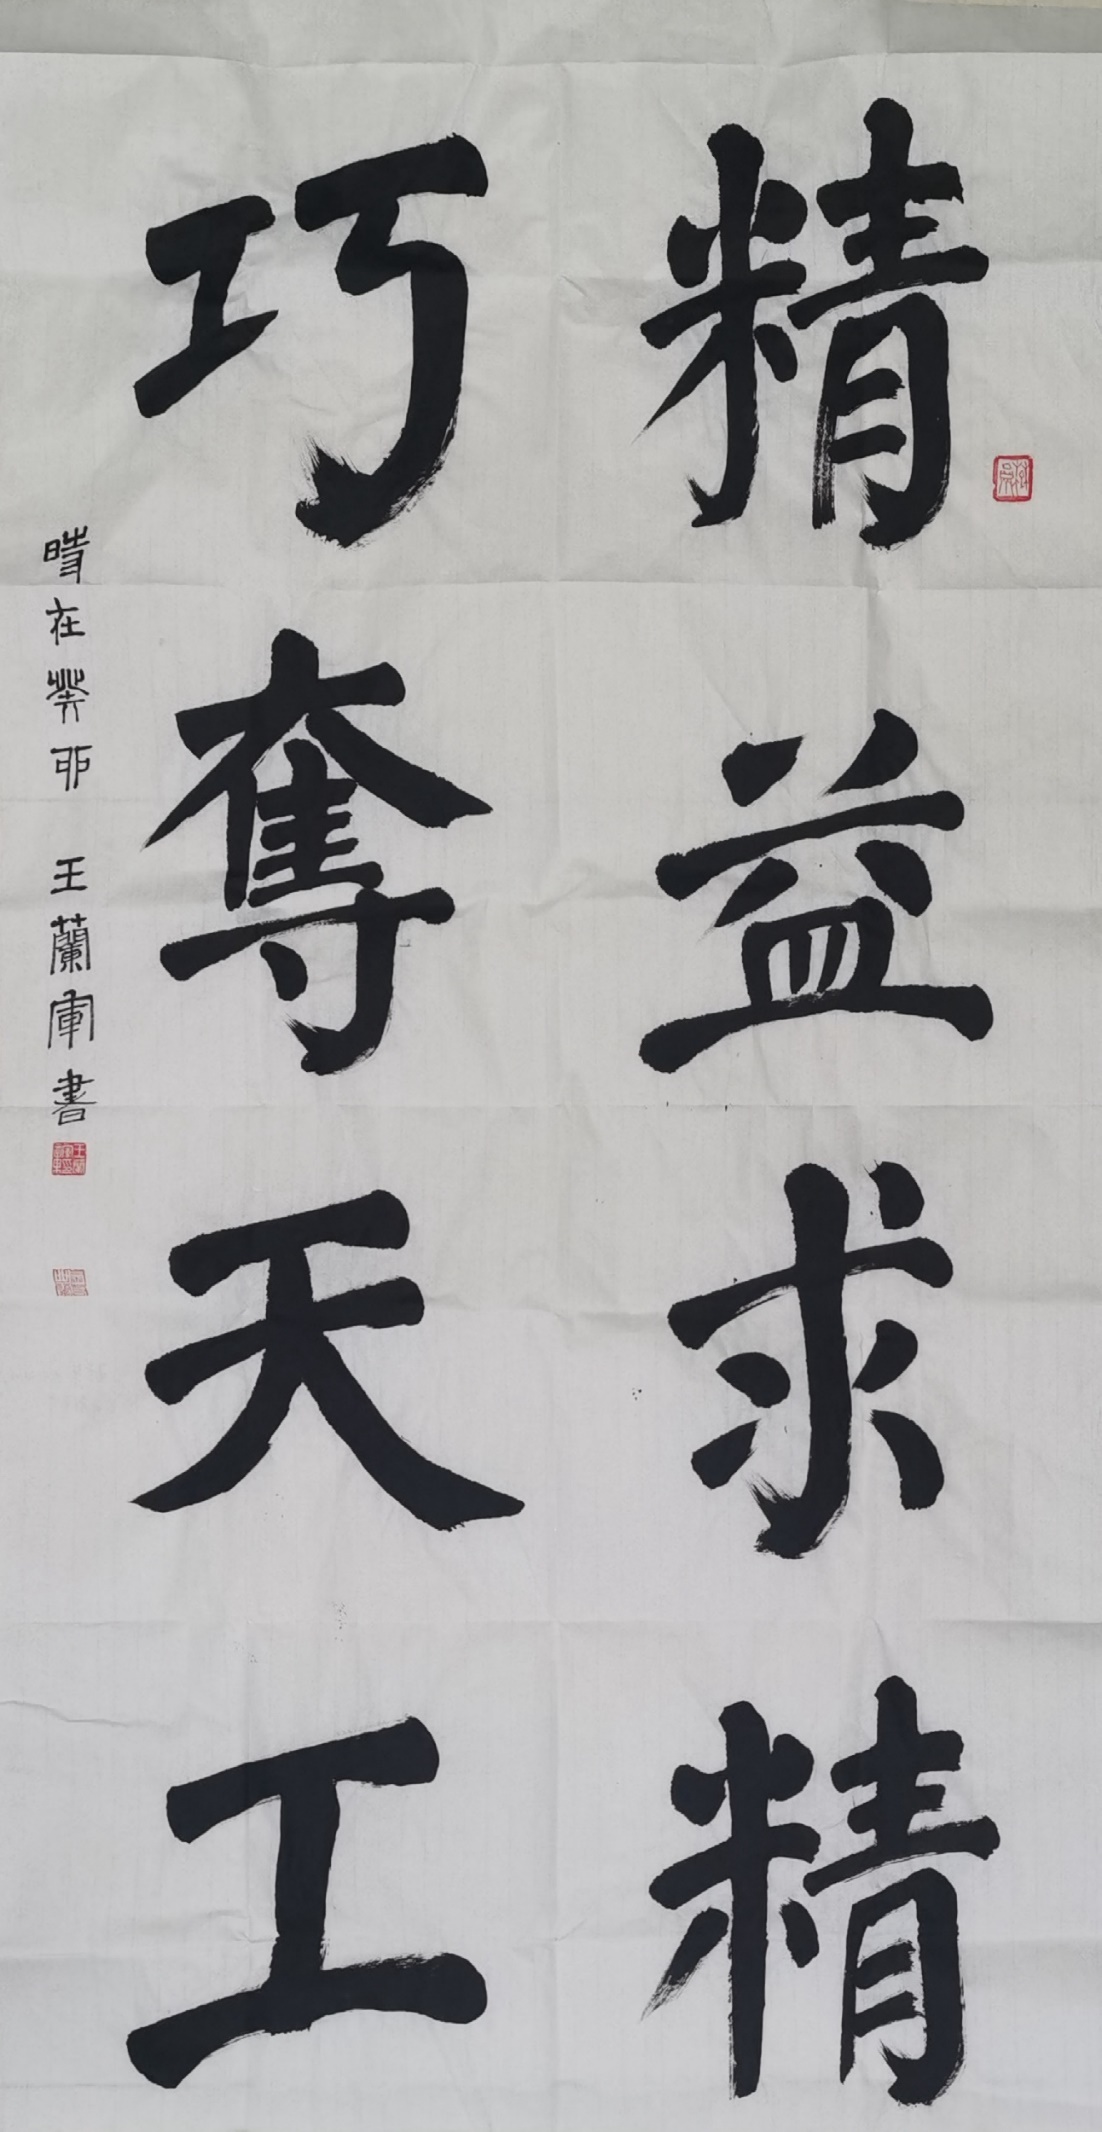 精益求精
巧奪天工
時在癸卯 王蘭軍書